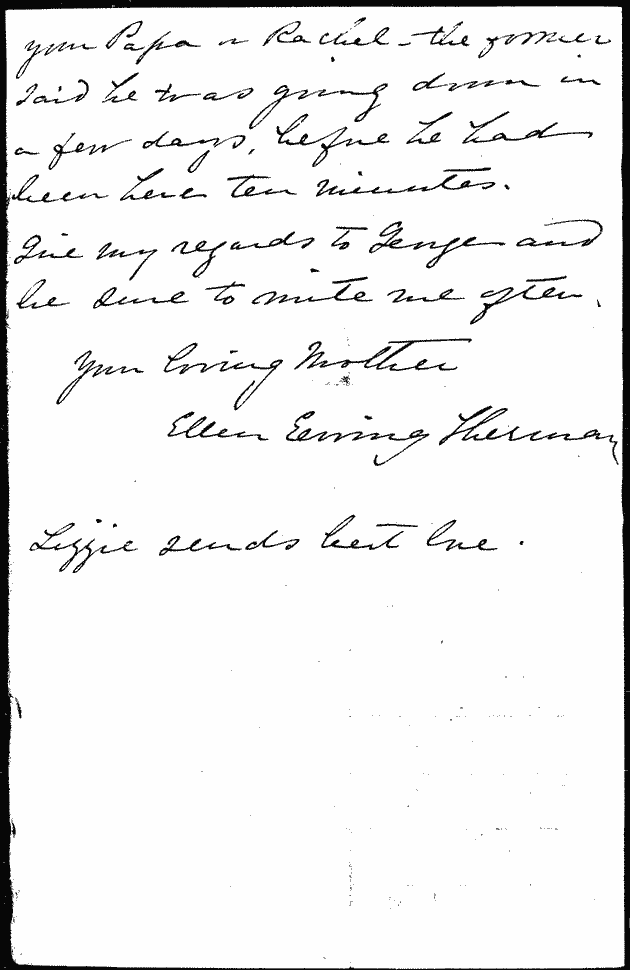 your Papa or Rachel - the former
said he was going down in
a few days, before he had
been here ten minutes.
Give my regards to George and
be sure to write me often.
Your loving Mother
Ellen Ewing Sherman
Lizzie sends best love.